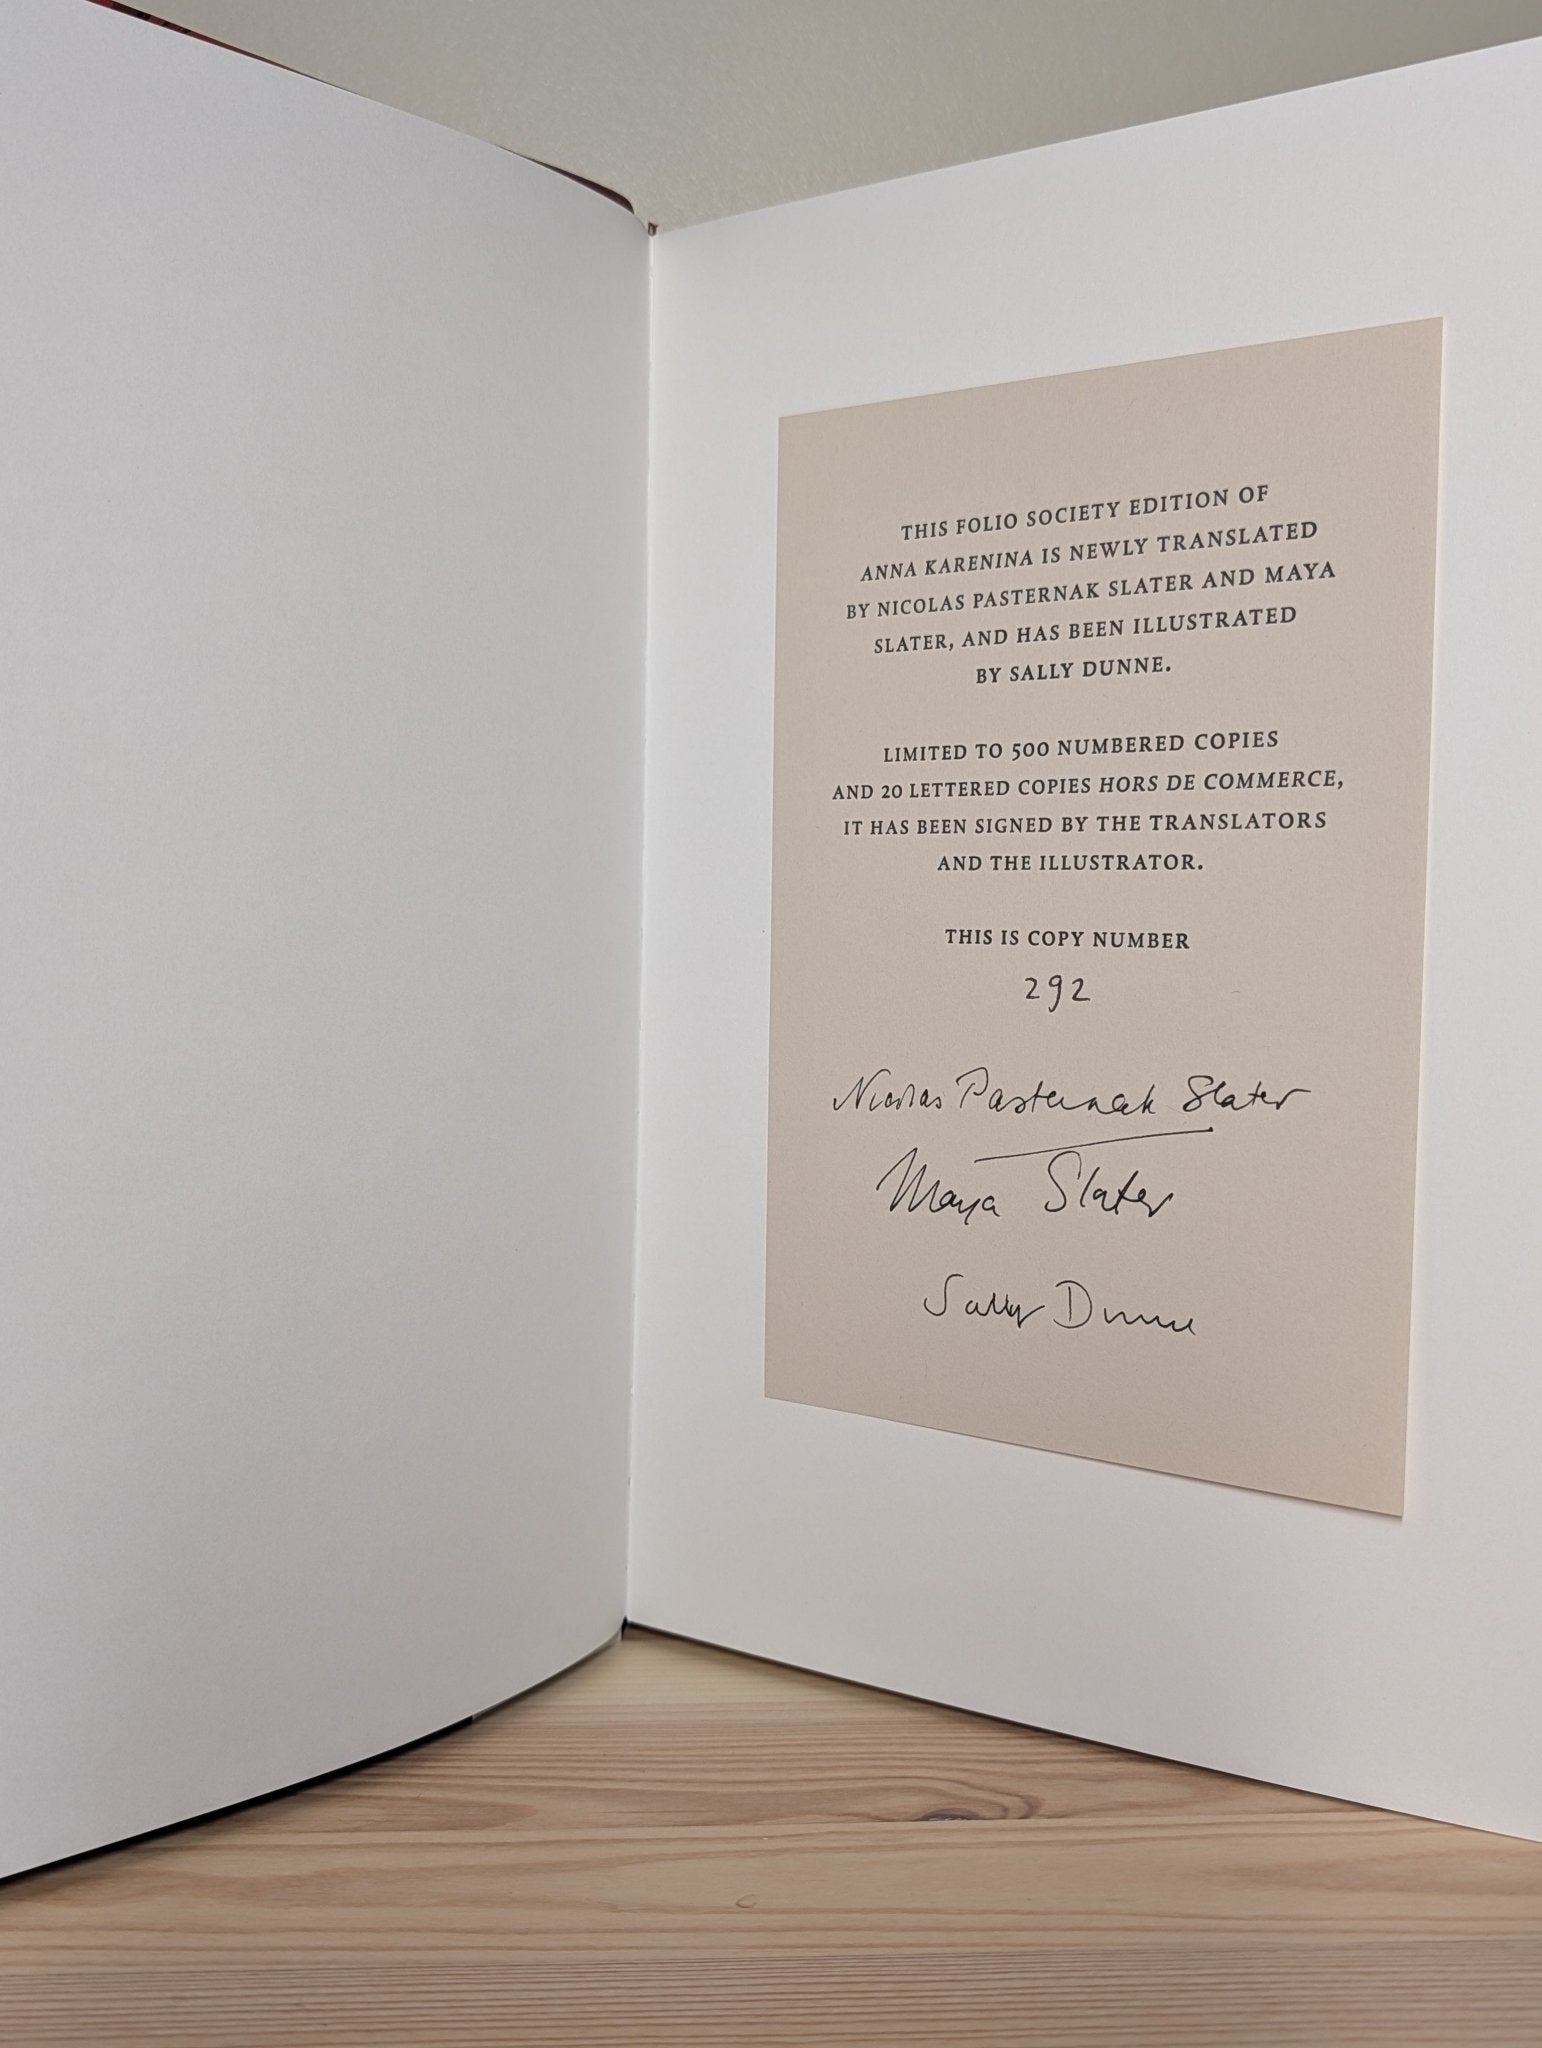 THIS FOLIO SOCIETY EDITION OF
ANNA KARENINA IS NEWLY TRANSLATED
BY NICOLAS PASTERNAK SLATER AND MAYA
SLATER, AND HAS BEEN ILLUSTRATED
BY SALLY DUNNE.
LIMITED TO 500 NUMBERED COPIES
AND 20 LETTERED COPIES HORS DE COMMERCE,
IT HAS BEEN SIGNED BY THE TRANSLATORS
AND THE ILLUSTRATOR.
THIS IS COPY NUMBER
292
Nicolas Pasternak Slater
Maya Slater
Sally Dunne